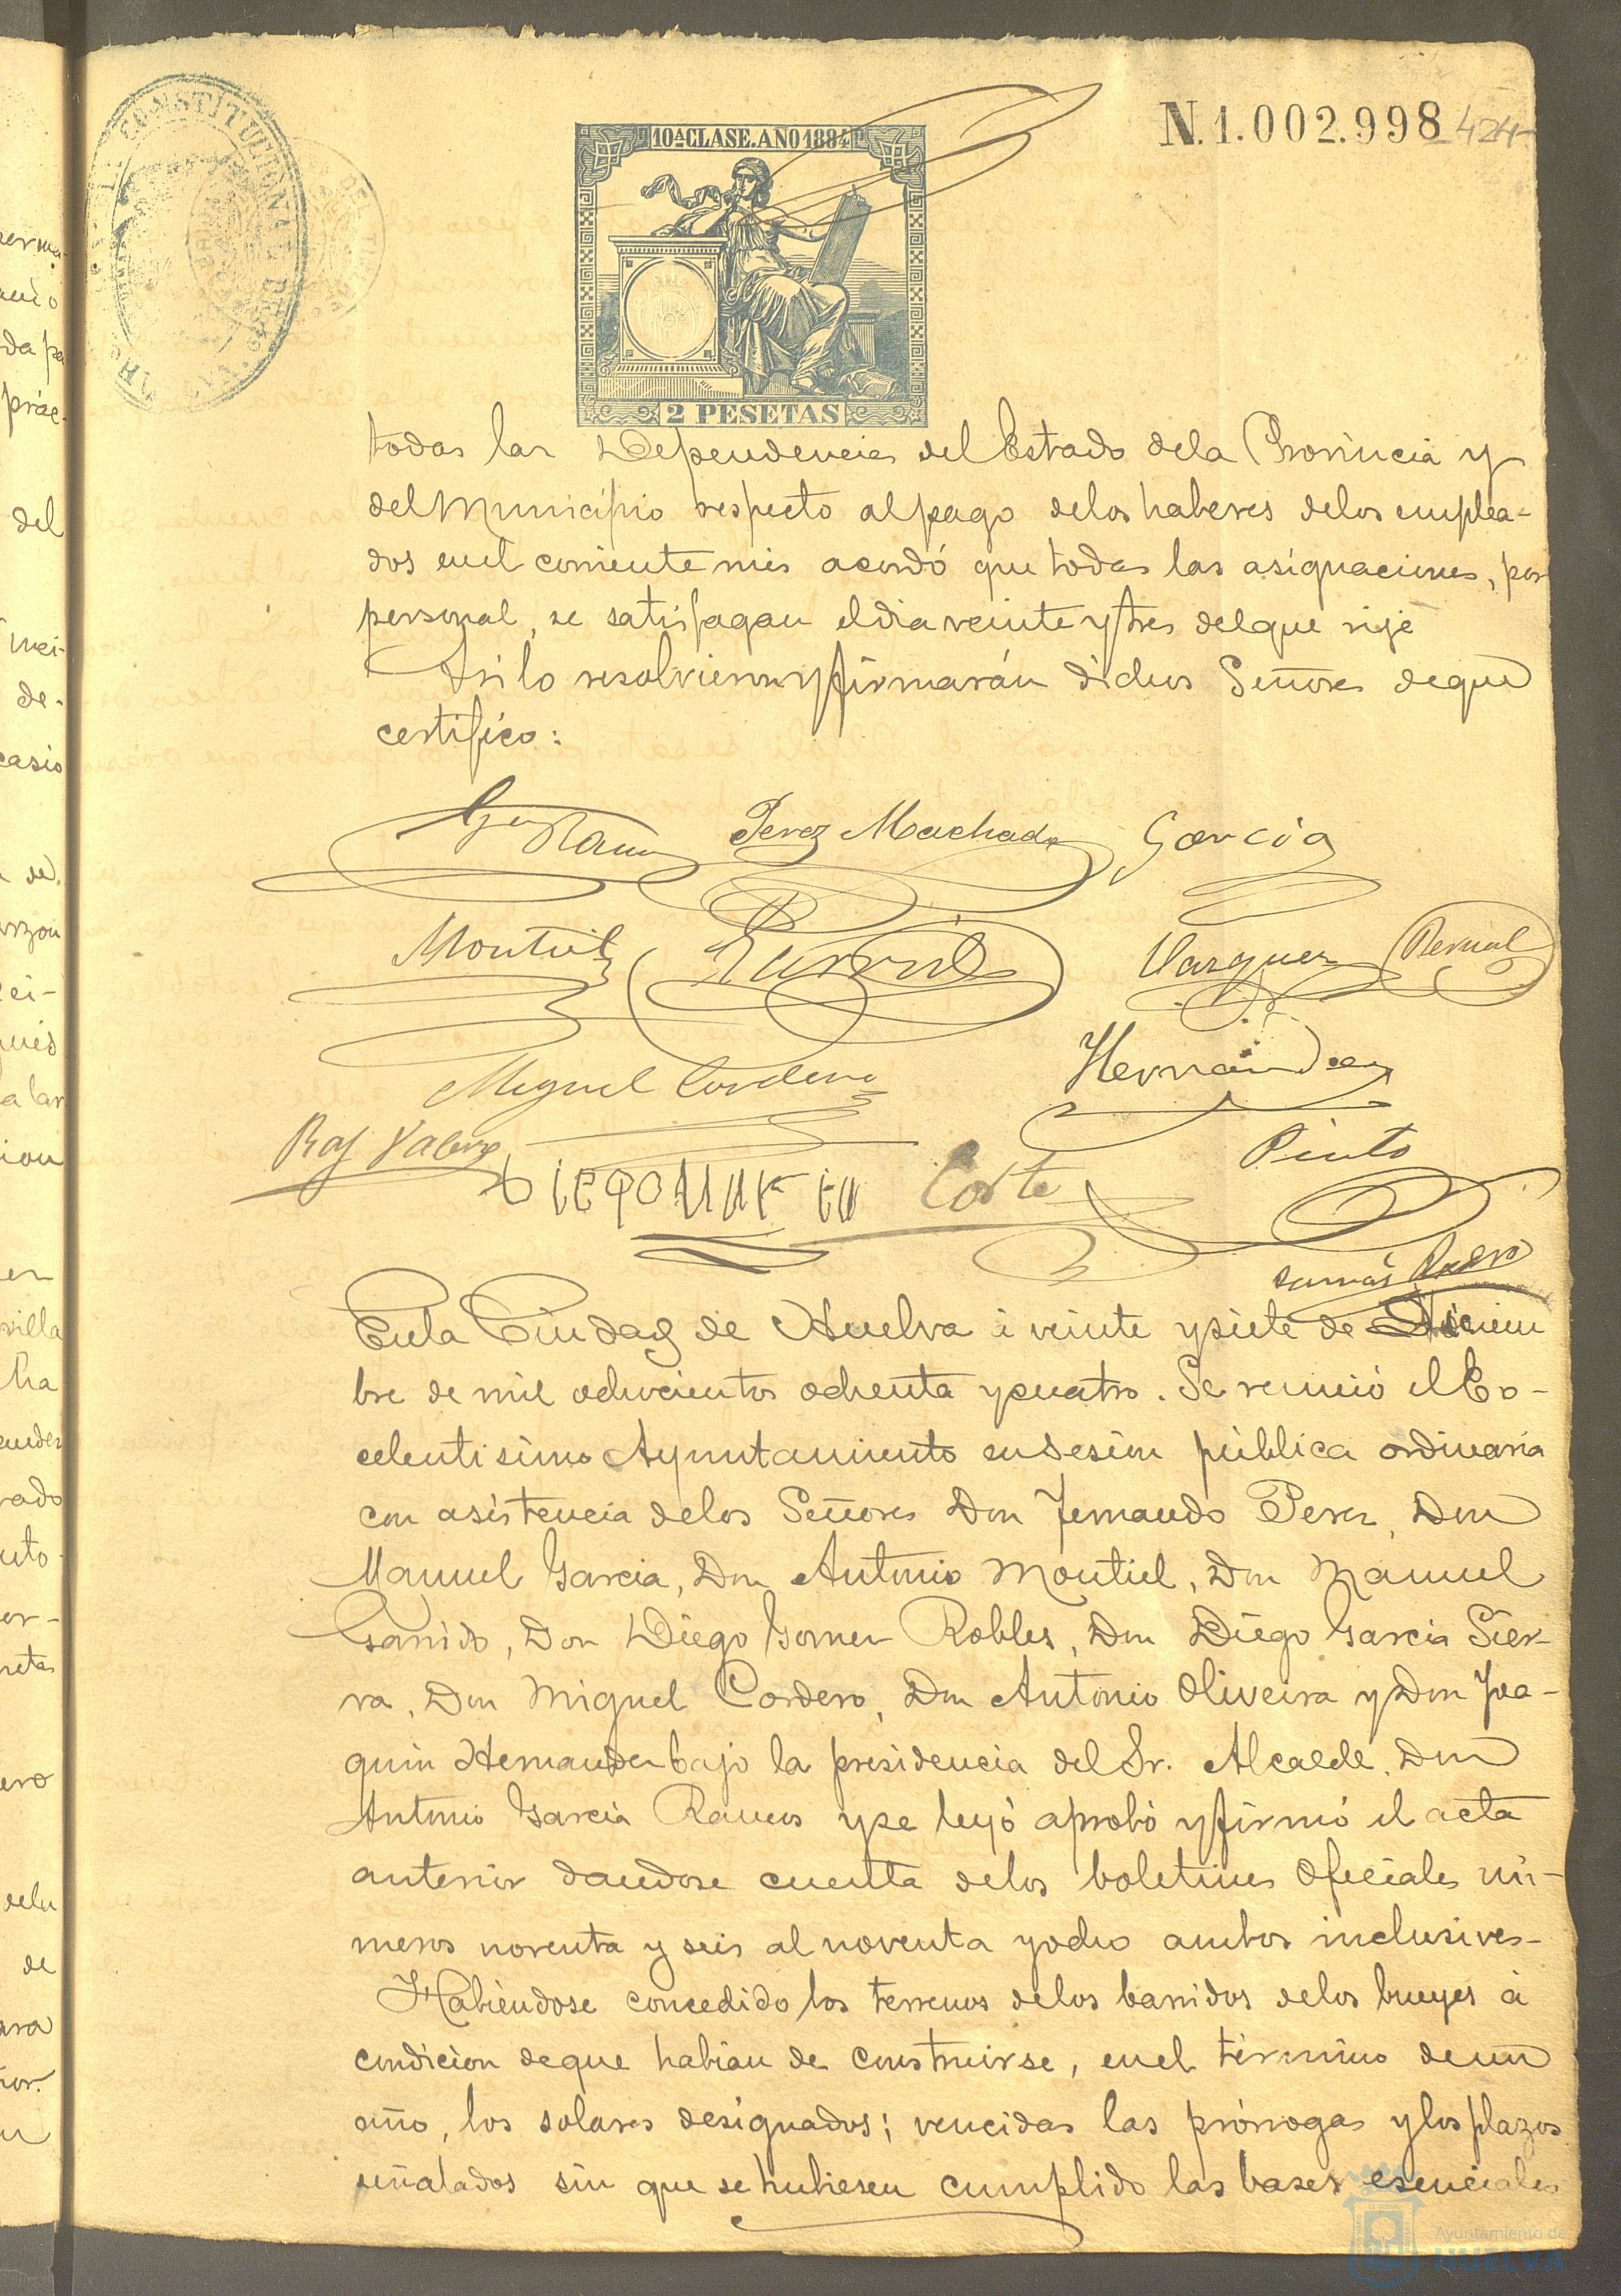 CONSTITUCIONAL DE
10ª CLASE. AÑO 1884
N.1.002.998
424
2 PESETAS
todas las Dependencias del Estado dela Provincia y
del Municipio respecto al pago delos haberes delos emplea-
dos enel corriente mes acordó que todas las asignaciones, por
personal, se satisfagan el dia veinte y tres del que rije
Asi lo resolvieron y firmarán dichos Señores deque
certifico:
Perez Machado García
Montiel Garrido Vazquez Bernal
Miguel Cordero Hernandez
Pinto
Corte
Enla Ciudad de Huelva á veinte y siete de Diciem
bre de mil ochocientos ochenta y cuatro. Se reunió el Ex-
celentisimo Ayuntamiento en sesion pública ordinaria
con asistencia delos Señores Don Fernando Perez, Don
Manuel Garcia, Don Antonio Montiel, Don Manuel
Garrido, Don Diego Gomez Robles, Don Diego Garcia Sier-
ra, Don Miguel Cordero, Don Antonio Oliveira y Don Joa-
quin Hernandez bajo la presidencia del Sr. Alcalde, Don
Antonio Garcia Ramos y se leyó aprobó y firmó el acta
anterior dandose cuenta delos boletines oficiales nú-
meros noventa y seis al noventa y ocho ambos inclusives-
Habiéndose concedido los terrenos delos barridos delos bueyes á
condicion deque habian de construirse, enel término de un
año, los solares designados; vencidas las prórrogas y los plazos
señalados sin que se hubiesen cumplido las bases esenciales
Ayuntamiento de
HUELVA